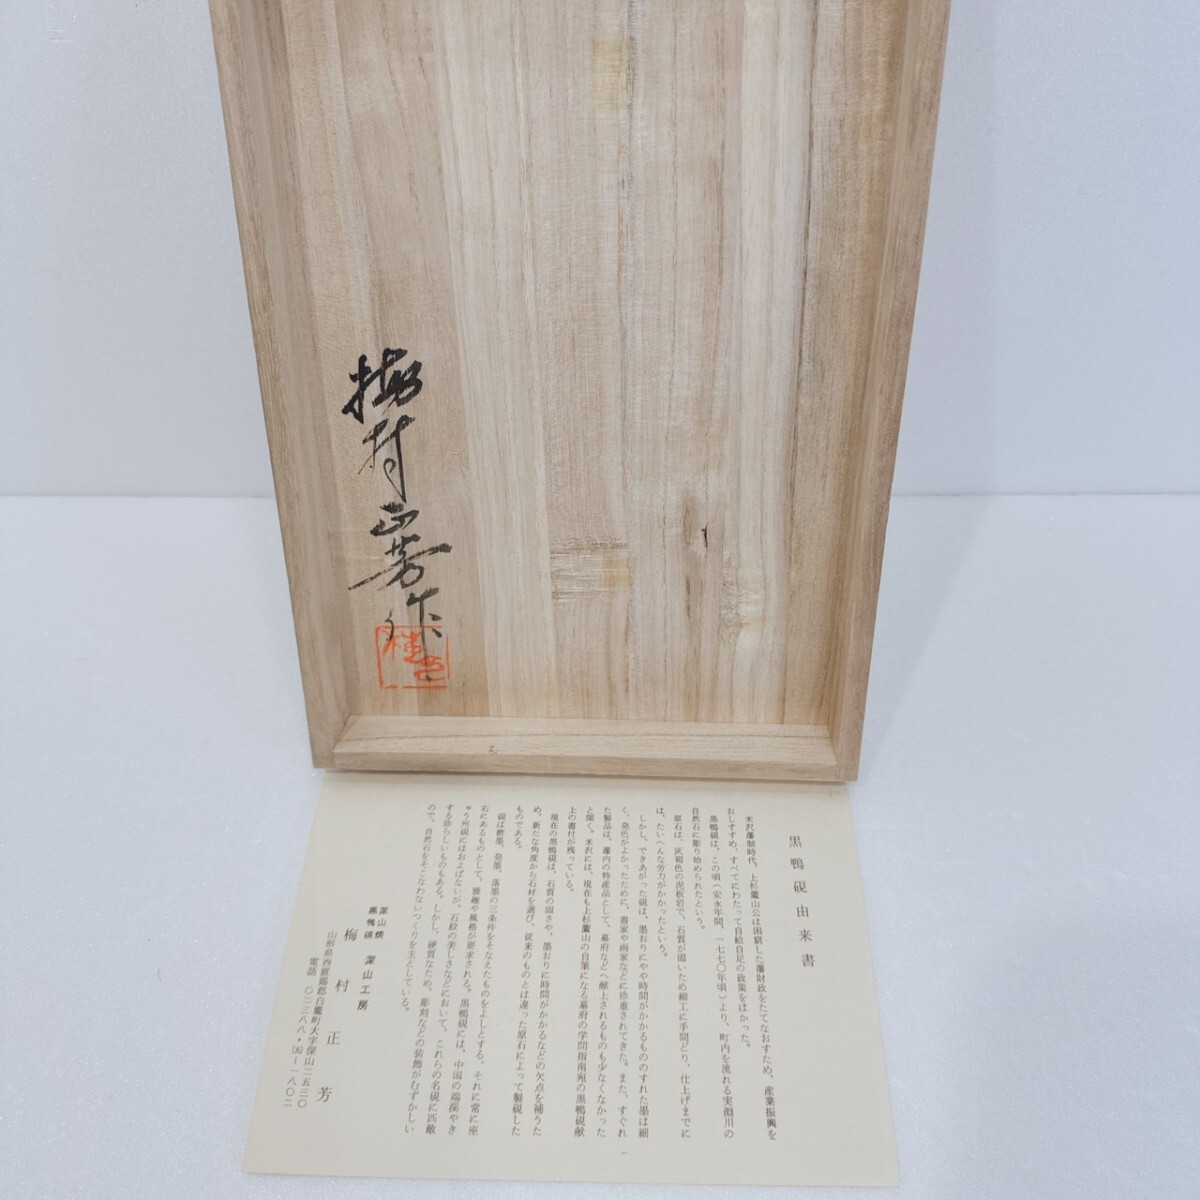 梅村正芳作
黒鴨硯由来書
米沢藩制時代、上杉鷹山公は困窮した藩財政をたてなおすため、産業振興を
おしすすめ、すべてにわたって自給自足の政策をはかった。
黒鴨硯は、この頃（安永年間、一七七〇年頃）より、町内を流れる実淵川の
自然石に彫り始められたという。
原石は、灰褐色の泥板岩で、石質が固いため細工に手間どり、仕上げまでに
は、たいへんな労力がかかったという。
しかし、できあがった硯は、墨おりにやや時間がかかるもののすれた墨は細
く、発色がよかったために、書家や画家などに珍重されてきた。また、すぐれ
た製品は、藩内の特産品として、幕府などへ献上されるものも少なくなかった
と聞く。米沢には、現在も上杉鷹山の自筆になる幕府の学問指南宛の黒鴨硯献
上の書付が残っている。
現在の黒鴨硯は、石質の固さや、墨おりに時間がかかるなどの欠点を補うた
め、新たな角度から石材を選び、従来のものとは違った原石によって製硯した
ものである。
硯は磨墨、発墨、落墨の三条件をそなえたものをよしとする。それに常に座
右にあるものとして、雅趣や風格が要求される。黒鴨硯には、中国の端渓やき
ゅう州硯にはおよばないが、石紋の美しさなどにおいて、これらの名硯に匹敵
する誇らしいものもある。しかし、硬質なため、彫刻などの装飾がむずかしい
ので、自然石をそこなわないつくりを主としている。
深山焼
黒鴨硯 深山工房
梅村正芳
山形県西置賜郡白鷹町大字深山二五三〇
電話 〇二三八八・㈤ー一八〇二